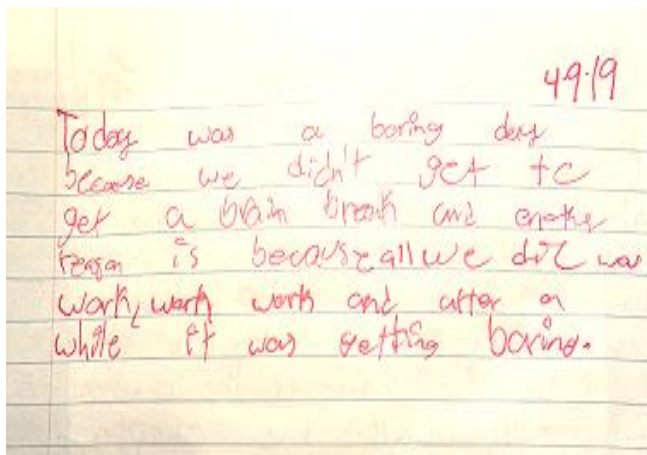 4·9·19
Today was a boring day
because we didn't get to
get a brain break and another
reason is because all we did was
work, work work and after a
while it was getting boring.